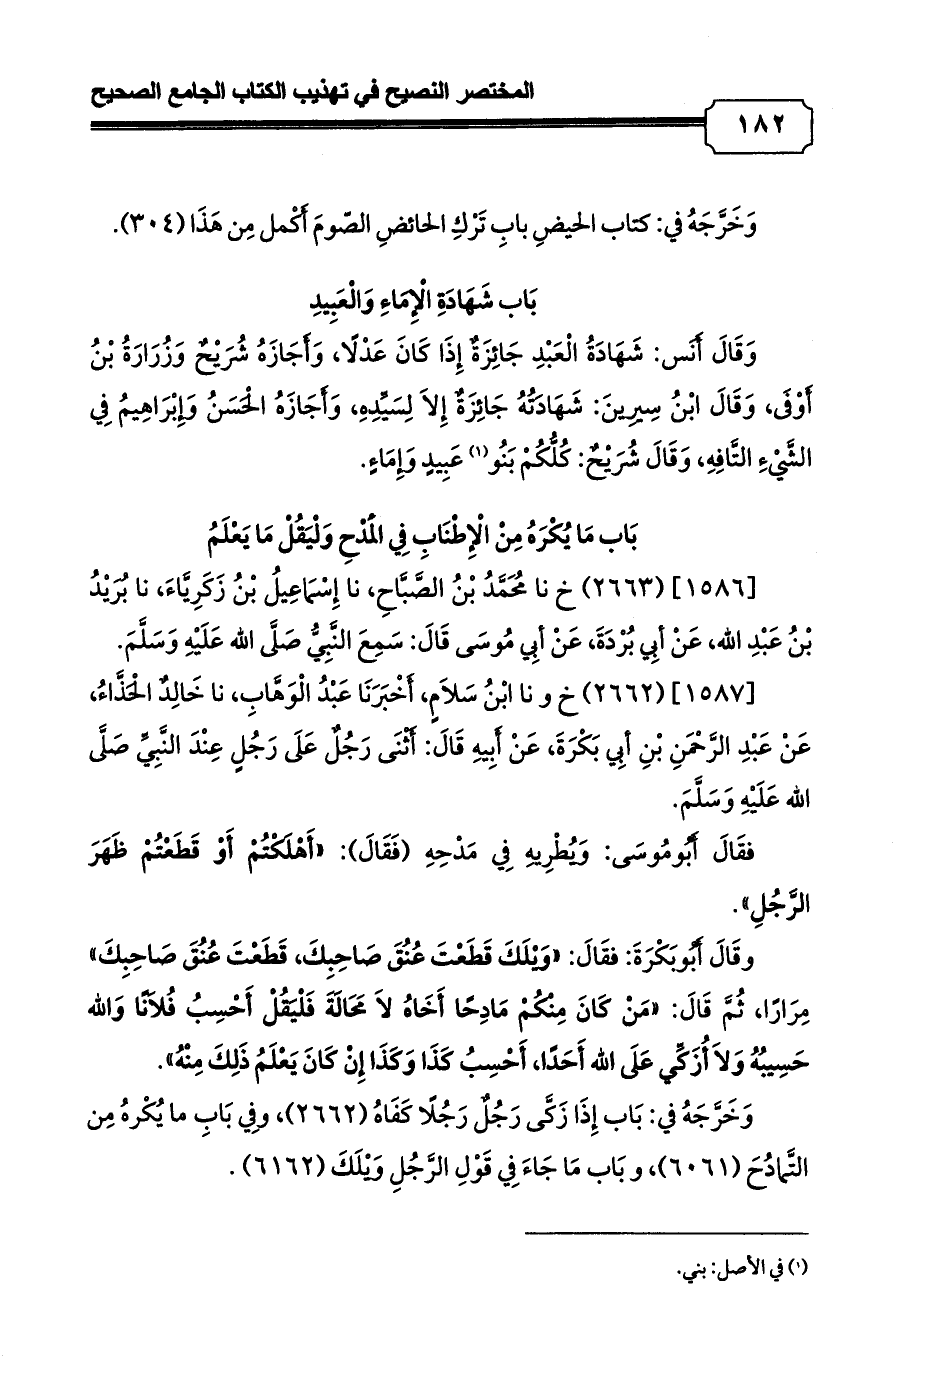 المختصر النصيح في تهذيب الكتاب الجامع الصحيح
١٨٢
وَخَرَّجَهُ في: كتاب الحيضِ بابِ تَرْكِ الحائضِ الصّومَ أَكْمل مِن هَذَا (٣٠٤).
بَاب شَهَادَةِ الْإِمَاءِ وَالْعَبِيدِ
وَقَالَ أَنَس: شَهَادَةُ العَبْدِ جَائِزَةٌ إِذَا كَانَ عَدْلًا، وَأَجَازَهُ شُرَيْحٌ وَزُرَارَةُ بْنُ
أَوْفَى، وَقَالَ ابْنُ سِيرِينَ: شَهَادَتُهُ جَائِزَةٌ إِلاَ لِسَيِّدِهِ، وَأَجَازَهُ الحَسَنُ وَإِبْرَاهِيمُ فِي
الشَّيْءِ التَّافِهِ، وَقَالَ شُرَيْحٌ: كُلُّكُمْ بَنُو(١) عَبِيدٍ وَإِمَاءٍ.
بَاب مَا يُكْرَهُ مِنْ الْإِطْنَابِ فِي المَدْحِ وَلْيَقُلْ مَا يَعْلَمُ
[١٥٨٦] (٢٦٦٣) خ نا مُحَمَّدُ بْنُ الصَّبَّاحِ، نا إِسْمَاعِيلُ بْنُ زَكَرِيَّاءَ، نا بُرَيْدُ
بْنُ عَبْدِ الله، عَنْ أَبِي بُرْدَةَ، عَنْ أَبِي مُوسَى قَالَ: سَمِعَ النَّبِيُّ صَلَّى الله عَلَيْهِ وَسَلَّمَ.
[١٥٨٧] (٢٦٦٢) خ و نا ابْنُ سَلاَمٍ، أَخْبَرَنَا عَبْدُ الْوَهَّابِ، نا خَالِدٌ الحَذَّاءُ،
عَنْ عَبْدِ الرَّحْمَنِ بْنِ أَبِي بَكْرَةَ، عَنْ أَبِيهِ قَالَ: أَثْنَى رَجُلٌ عَلَى رَجُلٍ عِنْدَ النَّبِيِّ صَلَّى
الله عَلَيْهِ وَسَلَّمَ.
فقَالَ أَبُومُوسَى: وَيُطْرِيهِ فِي مَدْحِهِ (فَقَالَ): «أَهْلَكْتُمْ أَوْ قَطَعْتُمْ ظَهَرَ
الرَّجُلِ».
وقَالَ أَبُوبَكْرَةَ: فقَالَ: «وَيْلَكَ قَطَعْتَ عُنُقَ صَاحِبِكَ، قَطَعْتَ عُنُقَ صَاحِبِكَ»
مِرَارًا، ثُمَّ قَالَ: «مَنْ كَانَ مِنْكُمْ مَادِحًا أَخَاهُ لاَ مَحَالَةَ فَلْيَقُلْ أَحْسِبُ فُلاَنًا وَالله
حَسِيبُهُ وَلاَ أُزَكِّي عَلَى الله أَحَدًا، أَحْسِبُ كَذَا وَكَذَا إِنْ كَانَ يَعْلَمُ ذَلِكَ مِنْهُ».
وَخَرَّجَهُ في: بَاب إِذَا زَكَّى رَجُلٌ رَجُلًا كَفَاهُ (٢٦٦٢)، وفِي بَابِ ما يُكْرهُ مِن
التَّمادُحَ (٦٠٦١)، وبَاب مَا جَاءَ فِي قَوْلِ الرَّجُلِ وَيْلَكَ (٦١٦٢).
(١) في الأصل: بني.